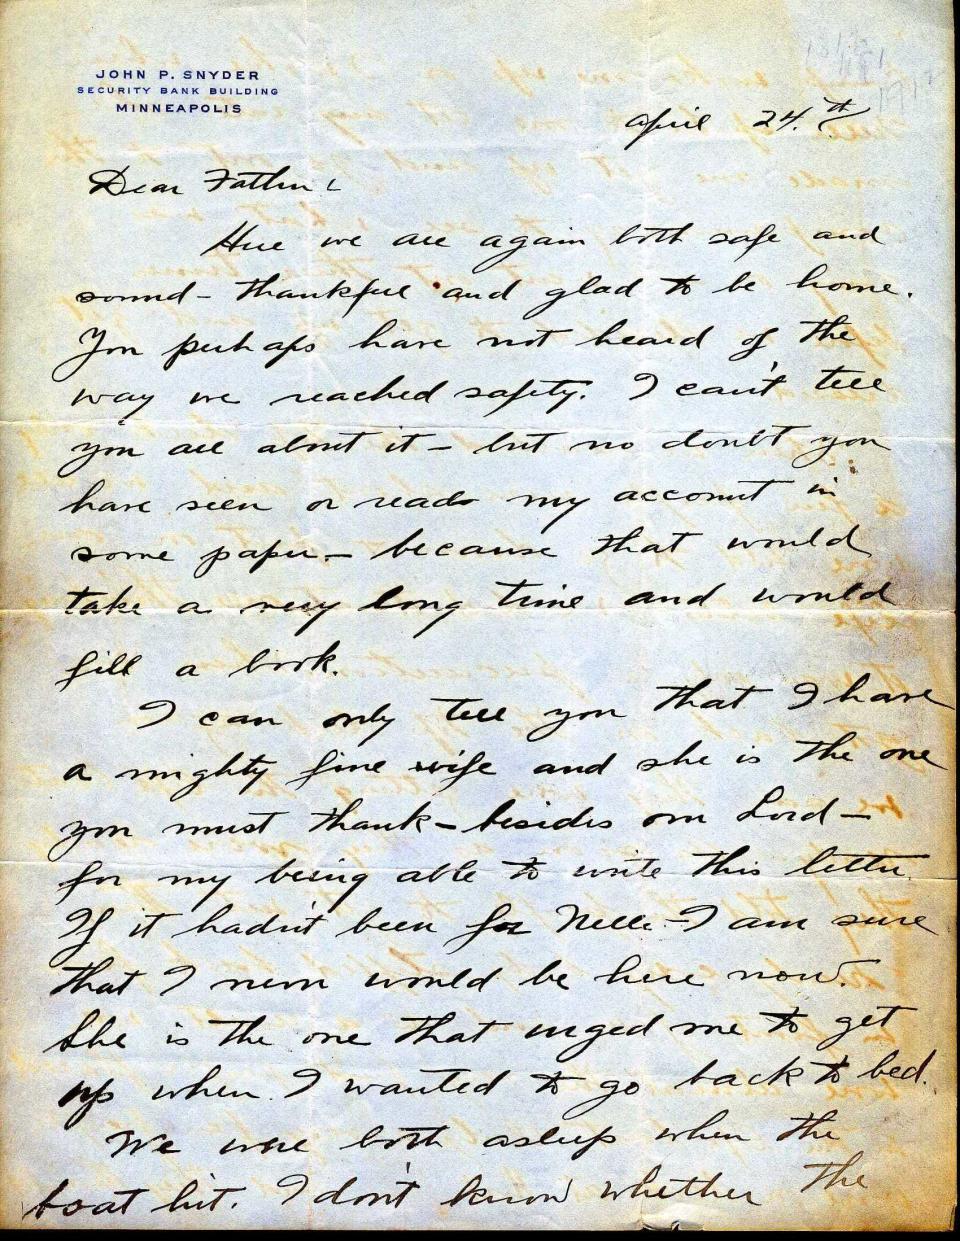 JOHN P. SNYDER
SECURITY BANK BUILDING
MINNEAPOLIS
April 24.th
Dear Father:
Here we are again both safe and
sound - thankful and glad to be home.
You perhaps have not heard of the
way we reached safety. I can't tell
you all about it - but no doubt you
have seen or read my account in
some paper - because that would
take a very long time and would
fill a book.
I can only tell you that I have
a mighty fine wife and she is the one
you must thank - besides our Lord -
for my being able to write this letter.
If it hadn't been for Nelle - I am sure
that I never would be here now.
She is the one that urged me to get
up when I wanted to go back to bed.
We were both asleep when the
boat hit. I don't know whether the